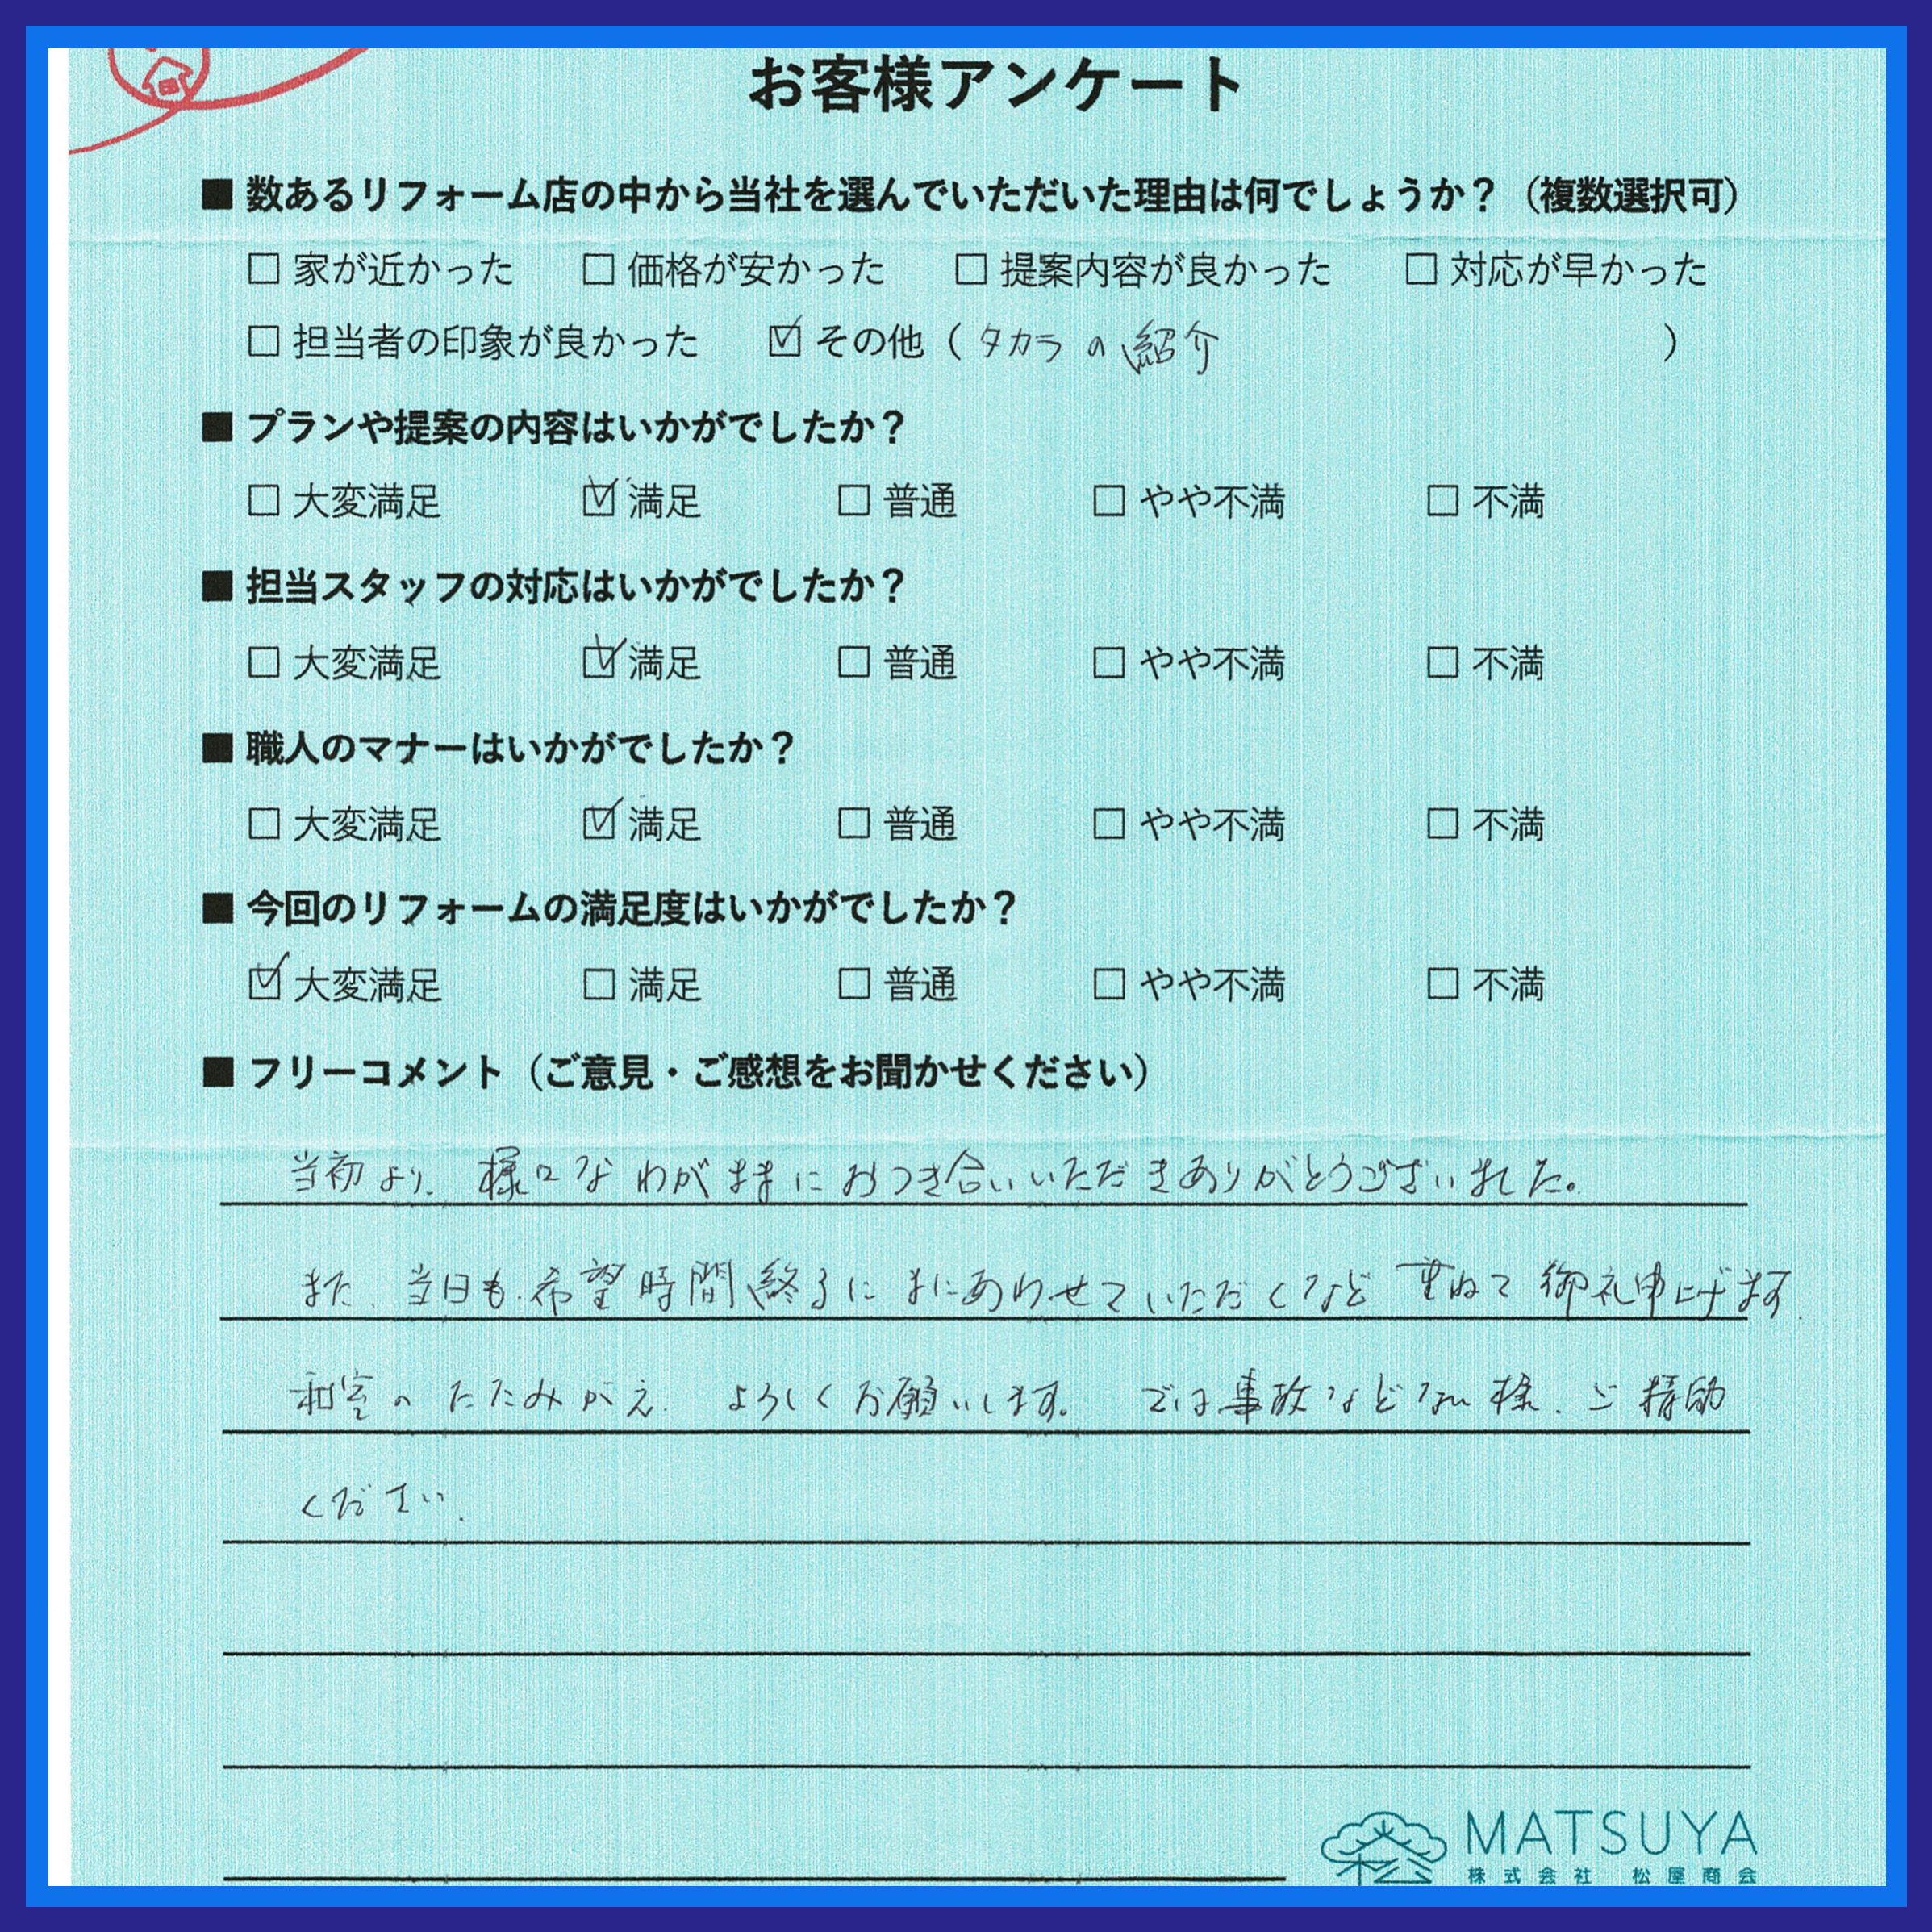 お客様アンケート
■ 数あるリフォーム店の中から当社を選んでいただいた理由は何でしょうか？（複数選択可）
□ 家が近かった □ 価格が安かった □ 提案内容が良かった □ 対応が早かった
□ 担当者の印象が良かった ☑ その他（タカラの紹介）
■ プランや提案の内容はいかがでしたか？
□ 大変満足 ☑ 満足 □ 普通 □ やや不満 □ 不満
■ 担当スタッフの対応はいかがでしたか？
□ 大変満足 ☑ 満足 □ 普通 □ やや不満 □ 不満
■ 職人のマナーはいかがでしたか？
□ 大変満足 ☑ 満足 □ 普通 □ やや不満 □ 不満
■ 今回のリフォームの満足度はいかがでしたか？
☑ 大変満足 □ 満足 □ 普通 □ やや不満 □ 不満
■ フリーコメント（ご意見・ご感想をお聞かせください）
当初より、様々なわがままにおつき合いいただきありがとうございました。
また、当日も、希望時間終了にまにあわせていただくなど重ねて御礼申上げます.
和室のたたみがえ、よろしくお願いします。では事故などない様、ご精励
ください.
MATSUYA
株式会社 松屋商会